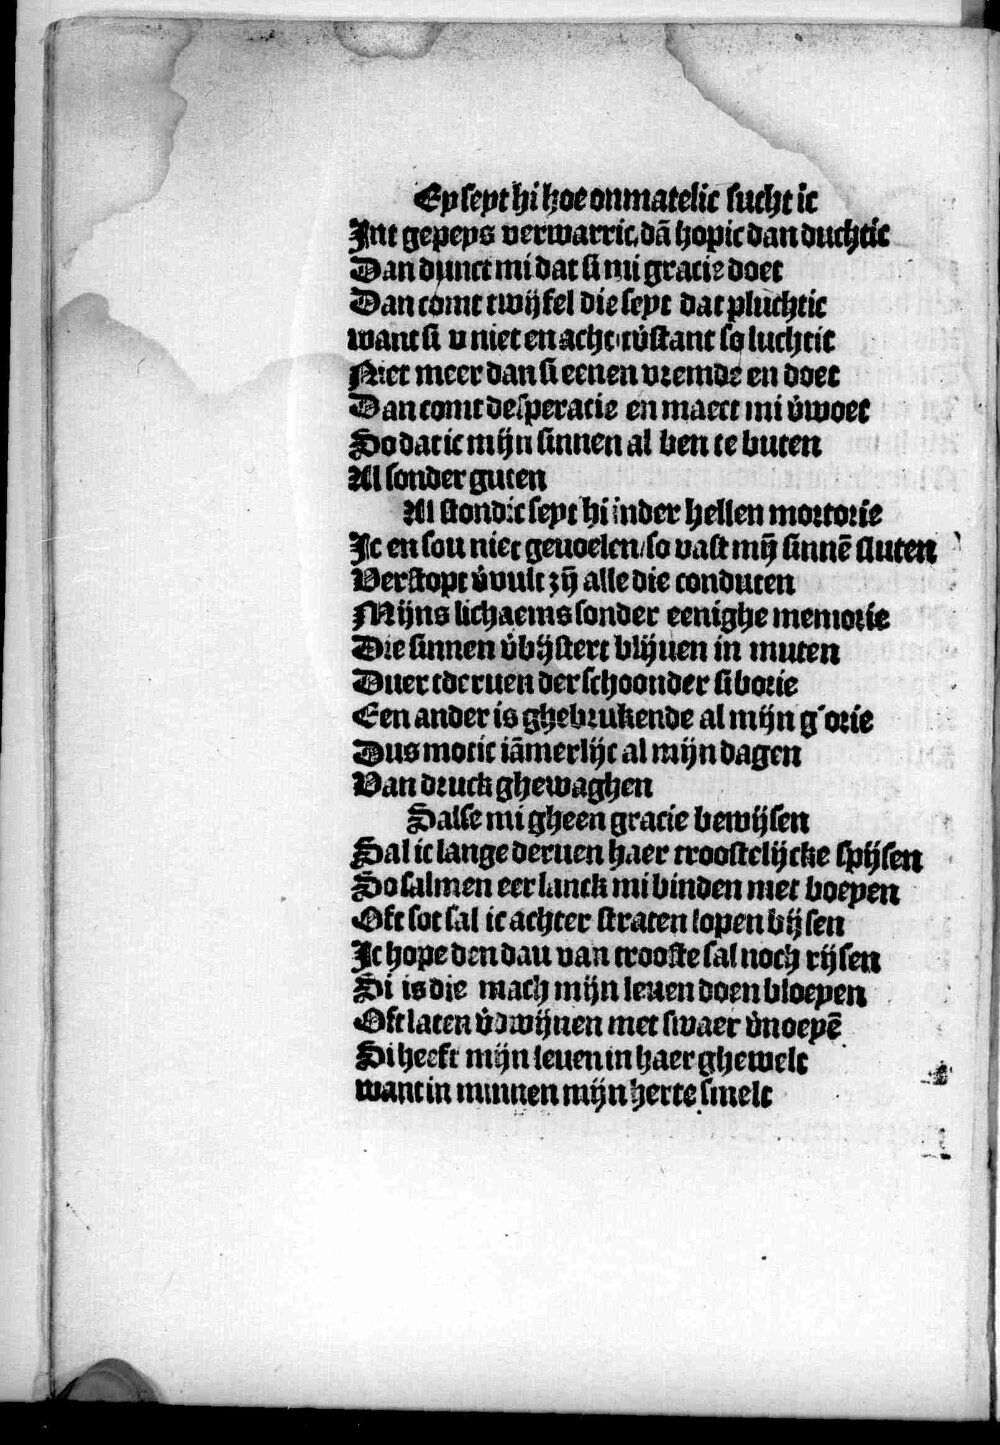 Ey seyt hi hoe onmatelic sucht ic
Int gepeys verwarric, dā hopic dan duchtic
Dan dunct mi dat si mi gracie doet
Dan comt twijfel die seyt dat pluchtic
want si v niet en acht, tv̄stant so luchtic
Niet meer dan si eenen vremde en doet
Dan comt desperatie en maect mi v̄woet
So dat ic mijn sinnen al ben te buten
Al sonder guten
Al stond ic seyt hi inder hellen mortorie
Ic en sou niet geuoelen/so vast mij sinnē sluten
Verstopt v̄vult zij alle die conduten
Mijns lichaems sonder eenighe memorie
Die sinnen v̄bijstert blijuen in muten
Duer tderuen der schoonder siborie
Een ander is ghebrukende al mijn glorie
Dus motic iāmerlijc al mijn dagen
Van druck ghewaghen
Salse mi gheen gracie bewijsen
Sal ic lange deruen haer troostelijcke spijsen
So salmen eer lanck mi binden met boeyen
Oft sot sal ic achter straten lopen bijsen
Ic hope den dau van trooste sal noch rijsen
Si is die mach mijn leuen doen bloeyen
Oft laten v̄dwijnen met swaer v̄noeyē
Si heeft mijn leuen in haer ghewelt
want in minnen mijn herte smelt